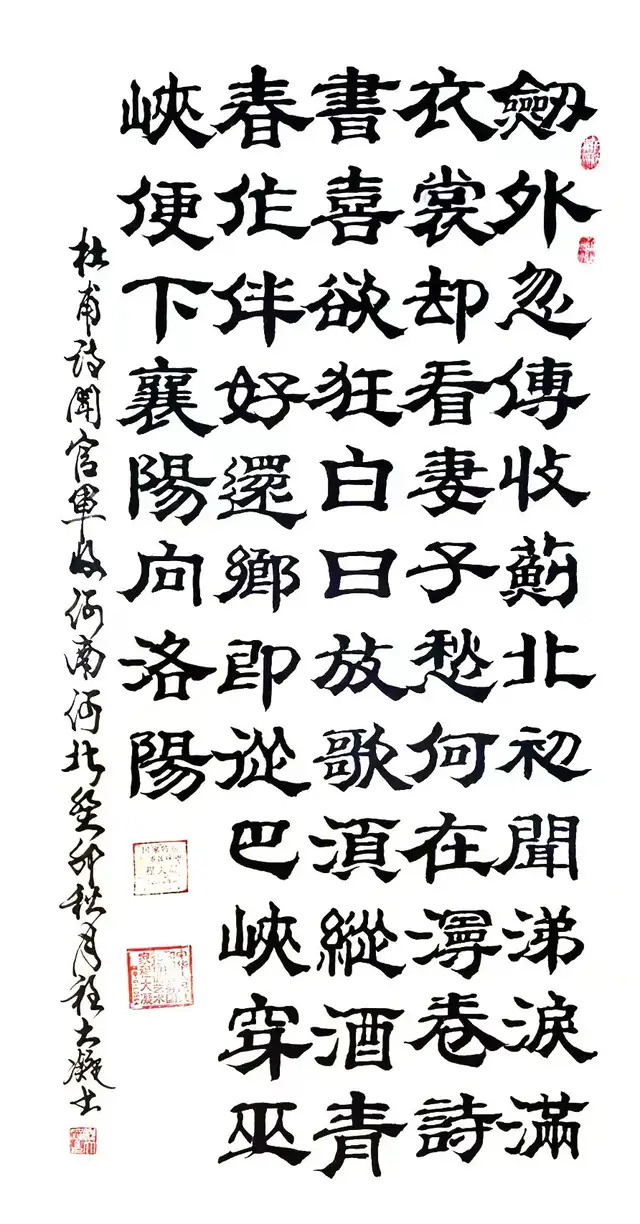 劔外忽傳收薊北初聞涕淚滿
衣裳却看妻子愁何在漫卷詩
書喜欲狂白日放歌湏縱酒青
春作伴好還鄉即從巴峽穿巫
峽便下襄陽向洛陽
杜甫詩聞官軍收河南河北癸卯秋月程大凝书